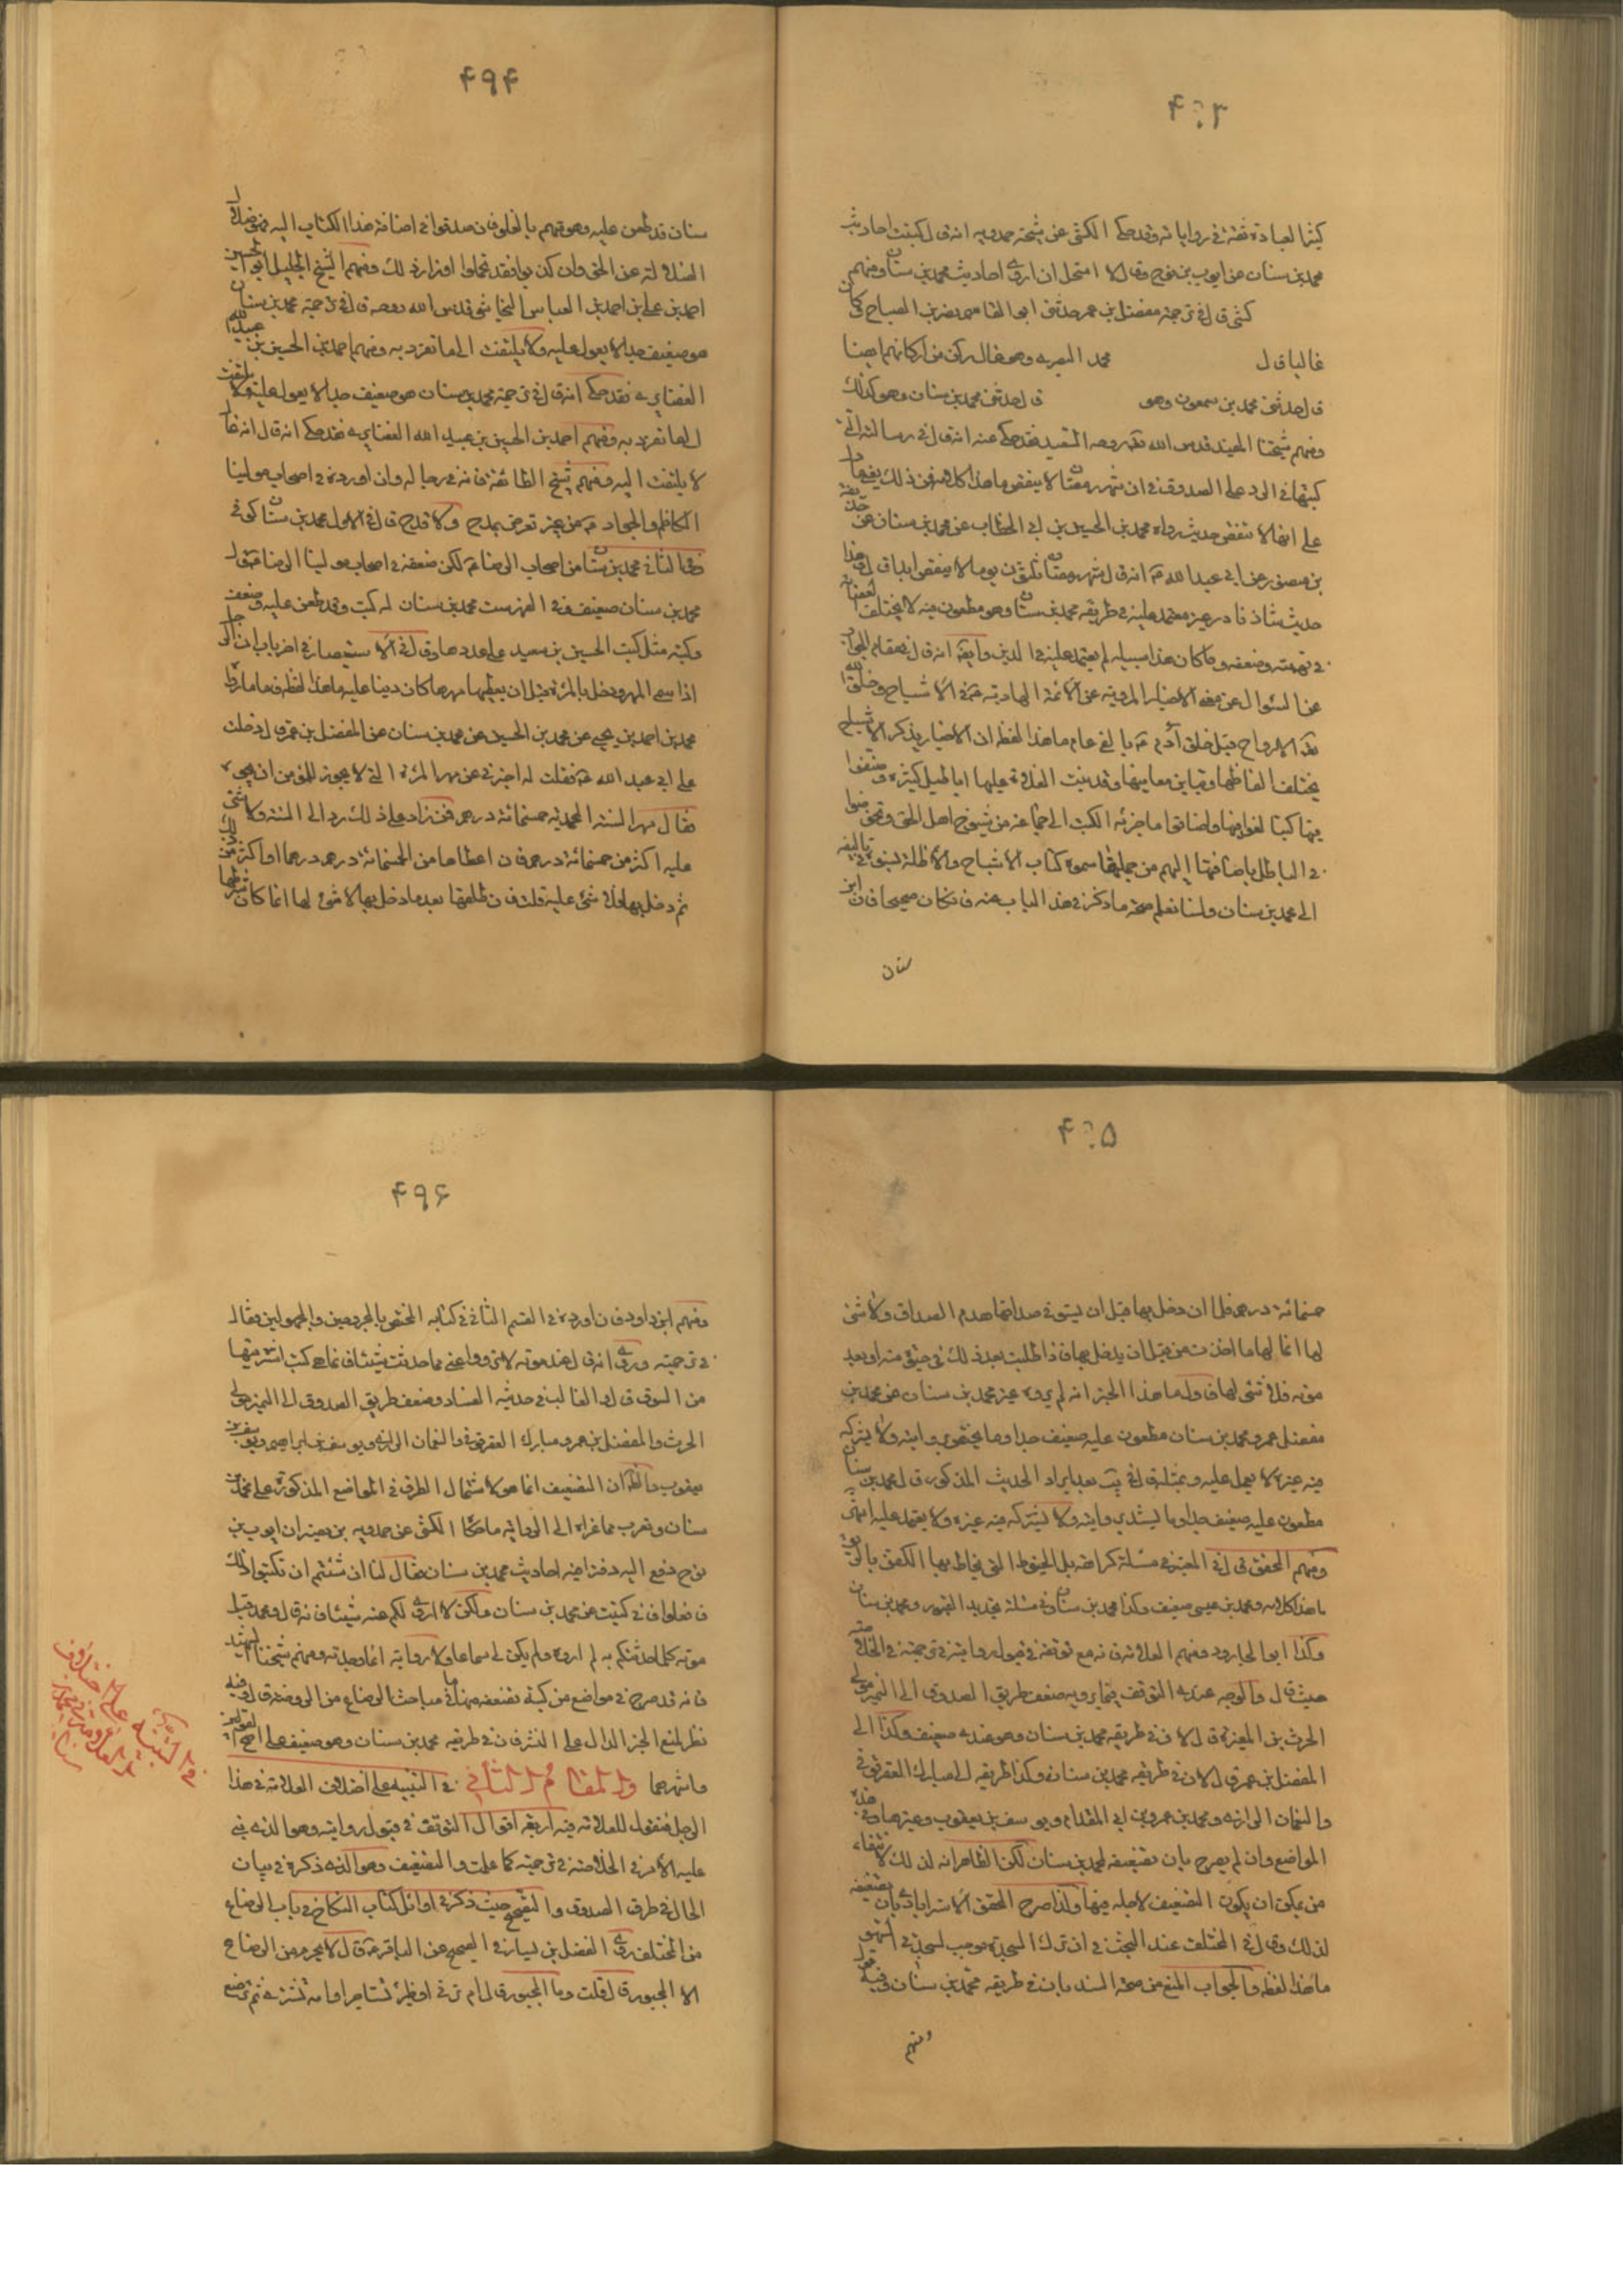 ۴۹۳
كثير العبادة ثقة في رواياته وقد حكى الكشي عن شيخه حمدويه انه قال كتبت احاديث
محمد بن سنان عن ايوب بن نوح وقال لا استحل ان اروي احاديث محمد بن سنان ومنهم
كشي قال في ترجمة مفضل بن عمر حدثني ابو القاسم نصر بن الصباح وكان
غاليا قال محمد البصري وهو غال ركن من اركانهم ايضا
قال حدثني محمد بن شمعون وهو قال حدثني محمد بن سنان وهو كذلك
ومنهم شيخنا المفيد قدس الله تعه روحه السعيد فقد حكي عنه انه قال في رسالته التي
كتبها في الرد على الصدوق في ان شهر رمضان لا ينقص ما هذا كلامه فمن ذلك
على انها لا تنقص حديث رواه محمد بن الحسين بن ابي الخطاب عن محمد بن سنان عن
بن منصور عن ابي عبد الله ع انه قال شهر رمضان ثلثون يوما لا ينقص ابدا قال وهذا
حديث شاذ نادر غير معتمد عليه في طريقه محمد بن سنان وهو مطعون فيه لا يختلف العصابة
في تهمته وضعفه وما كان هذا سبيله لم يعتمد عليه في الدين وايضا انه قال في مقام الجواب
عن السؤال عن هذه الاخبار المروية عن الائمة الهادية ع في الاشباح وخلق الله
تعه الارواح قبل خلق آدم ع بالفي عام ما هذا لفظه ان الاخبار بذكر الاشباح
يختلف الفاظها وتباين معانيها وقد بنت الغلاة عليها اباطيل كثيرة وصنفوا
فيها كتبا لغوا فيها واضافوا ما حوته الكتب الى جماعة من شيوخ اهل الحق وتخرصوا
في الباطل باضافتها اليهم من جملتها سموه كتاب الاشباح والاظلة نسبوه في تاليفه
الى محمد بن سنان ولسنا نعلم صحة ما ذكر في هذا الباب عنه فان كان صحيحا فان ابن
سنان
۴۹۴
سنان قد طعن عليه وهو متهم بالغلو فان صدقوا في اضافة هذا الكتاب اليه فهو ضلال
الضلالته عن الحق وان كذبوا فقد تحملوا اوزار ذلك ومنهم الشيخ الجليل ابو الحسين
احمد بن علي بن احمد بن العباس النجاشي قدس الله روحه قال في ترجمة محمد بن سنان
هو ضعيف جدا لا يعول عليه ولا يلتفت الى ما تفرد به ومنهم احمد بن الحسين بن عبيد الله
الغضايري فقد حكي انه قال في ترجمة محمد بن سنان هو ضعيف جدا لا يعول عليه ولا يلتفت
الى ما تفرد به ومنهم احمد بن الحسين بن عبيد الله الغضايري فقد حكي انه قال انه غال
لا يلتفت اليه ومنهم شيخ الطائفة فانه في رجاله وان اورده في اصحاب مولينا
الكاظم والجواد ع من غير تعرض بمدح ولا قدح قال في الاول محمد بن سنان كوفي
وفي الثاني محمد بن سنان من اصحاب الرضا ع لكن ضعفه في اصحاب مولينا الرضا ع فقال
محمد بن سنان ضعيف وفي الفهرست محمد بن سنان له كتب وقد طعن عليه وضعف
وكتبه مثل كتب الحسين بن سعيد على عددها وقال في الاستبصار في اخر باب ان الرجل
اذا سمى المهر ودخل بالمرئة قبل ان يعطيها مهرها كان دينا عليه ما هذا لفظه فاما ما رواه
محمد بن احمد بن يحيى عن محمد بن الحسين عن محمد بن سنان عن المفضل بن عمر قال دخلت
على ابي عبد الله ع فقلت له اخبرني عن مهر المرئة الذي لا يجوز للمؤمن ان يجوزه
فقال مهر السنة المحمدية خمسمائة درهم فمن زاد على ذلك رد الى السنة ولا شيء
عليه اكثر من خمسمائة درهم فان اعطاها من الخمسمائة درهم درهما او اكثر من ذلك
ثم دخل بها فلا شيء عليه قلت فان طلقها بعد ما دخل بها لا شيء لها انما كان شرطها
۴۹۵
خمسمائة درهم فلما ان دخل بها قبل ان يستوفي صداقها هدم الصداق ولا شيء
لها انما لها ما اخذت من قبل ان يدخل بها فاذا طلبت بعد ذلك في حيوة منه او بعد
موته فلا شيء لها فاول ما هذا الخبر انه لم يروه غير محمد بن سنان عن محمد بن
مفضل عمر ومحمد بن سنان مطعون عليه ضعيف جدا وما يختص بروايته ولا يشركه
فيه غيره لا يعمل عليه وبمثله قال في يب بعد ايراد الحديث المذكور قال محمد بن سنان
مطعون عليه ضعيف جدا وما يستبد بروايته ولا يشركه فيه غيره ولا يعتمد عليه انتهى
ومنهم المحقق قال في المعتبر في مسئلة كراهة بل الخيوط التي يخاط بها الكفن بالريق
ما هذا كلامه ومحمد بن عيسى ضعيف وكذا محمد بن سنان وفي مسئلة تجديد القبور ومحمد بن سنان
وكذا ابو الجارود ومنهم العلامة فانه مع توقفه في قبول روايته في ترجمته في الخلاصة
حيث قال والوجه عندي التوقف فيما يرويه ضعف طريق الصدوق الى النميري والى
الحرث بن المغيرة قال لان في طريقه محمد بن سنان وهو عنده ضعيف وكذا الى
المفضل بن عمر قال لان في طريقه محمد بن سنان وكذا طريقه الى مبارك العقرقوفي
والنعمان الرازي ومحمد بن عمرو بن ابي المقدام ويوسف بن يعقوب وغيرها وفي هذه
المواضع وان لم يصرح بان تضعيفه لمحمد بن سنان لكن الظاهر انه لذلك لانتفاء
من يمكن ان يكون التضعيف لاجله فيها ولذا صرح المحقق الاسترابادي بان تضعيفه
لذلك وقال في المختلف عند البحث في ان ترك السجدة موجب لسجدتي السهو
ما هذا لفظه والجواب المنع من صحة السند فان في طريقه محمد بن سنان وفيه قول
ومنهم
۴۹۶
ومنهم ابن داود فانه اورده في القسم الثاني في كتابه المختص بالمجروحين والمجهولين وقال
في ترجمته وروي انه قال عند موته لا ترووا عني مما حدثت شيئا فانما هي كتب اشتريتها
من السوق قال والغالب في حديثه الفساد وضعف طريق الصدوق الى النميري والى
الحرث والمفضل بن عمر ومبارك العقرقوفي والنعمان الرازي ويوسف بن ابراهيم ويوسف بن
يعقوب والظ ان التضعيف انما هو لاشتمال الطرق في المواضع المذكورة على محمد بن
سنان ويقرب مما عزاه الى الرواية ما حكاه الكشي عن حمدويه بن نصير ان ايوب بن
نوح دفع اليه دفترا فيه احاديث محمد بن سنان فقال لنا ان شئتم ان تكتبوا ذلك
فافعلوا فاني كتبت عن محمد بن سنان ولكن لا اروي لكم عنه شيئا فانه قال محمد قبل
موته كلما حدثتكم به لم اروه ولم يكن لي سماعا ولا رواية انما وجدته ومنهم شيخنا الشهيد
فانه قد صرح في مواضع من كتبه بضعفه منها ما في مباحث الرضاع من الروضة قال وفيه
نظر لمنع الخبر الدال على النشر فان في طريقه محمد بن سنان وهو ضعيف على اصح القولين
واشهرهما والمقام الثاني في التنبيه على اختلاف العلامة في هذا
الرجل فنقول للعلامة فيه اربعة اقوال التوقف في قبول روايته وهو الذي بنى
عليه الامر في الخلاصة في ترجمته كما علمت والتضعيف وهو الذي ذكره في بيان
الحال في طرق الصدوق والتصحيح حيث ذكر في اوائل كتاب النكاح في باب الرضاع
من المختلف روى الفضيل بن يسار في الصحيح عن الباقر ع قال لا يحرم من الرضاع
الا المجبور قال قلت وما المجبور قال ام تربي او ظئر تستاجر او امة تشترى ثم ترضع
في التنبيه على اختلاف